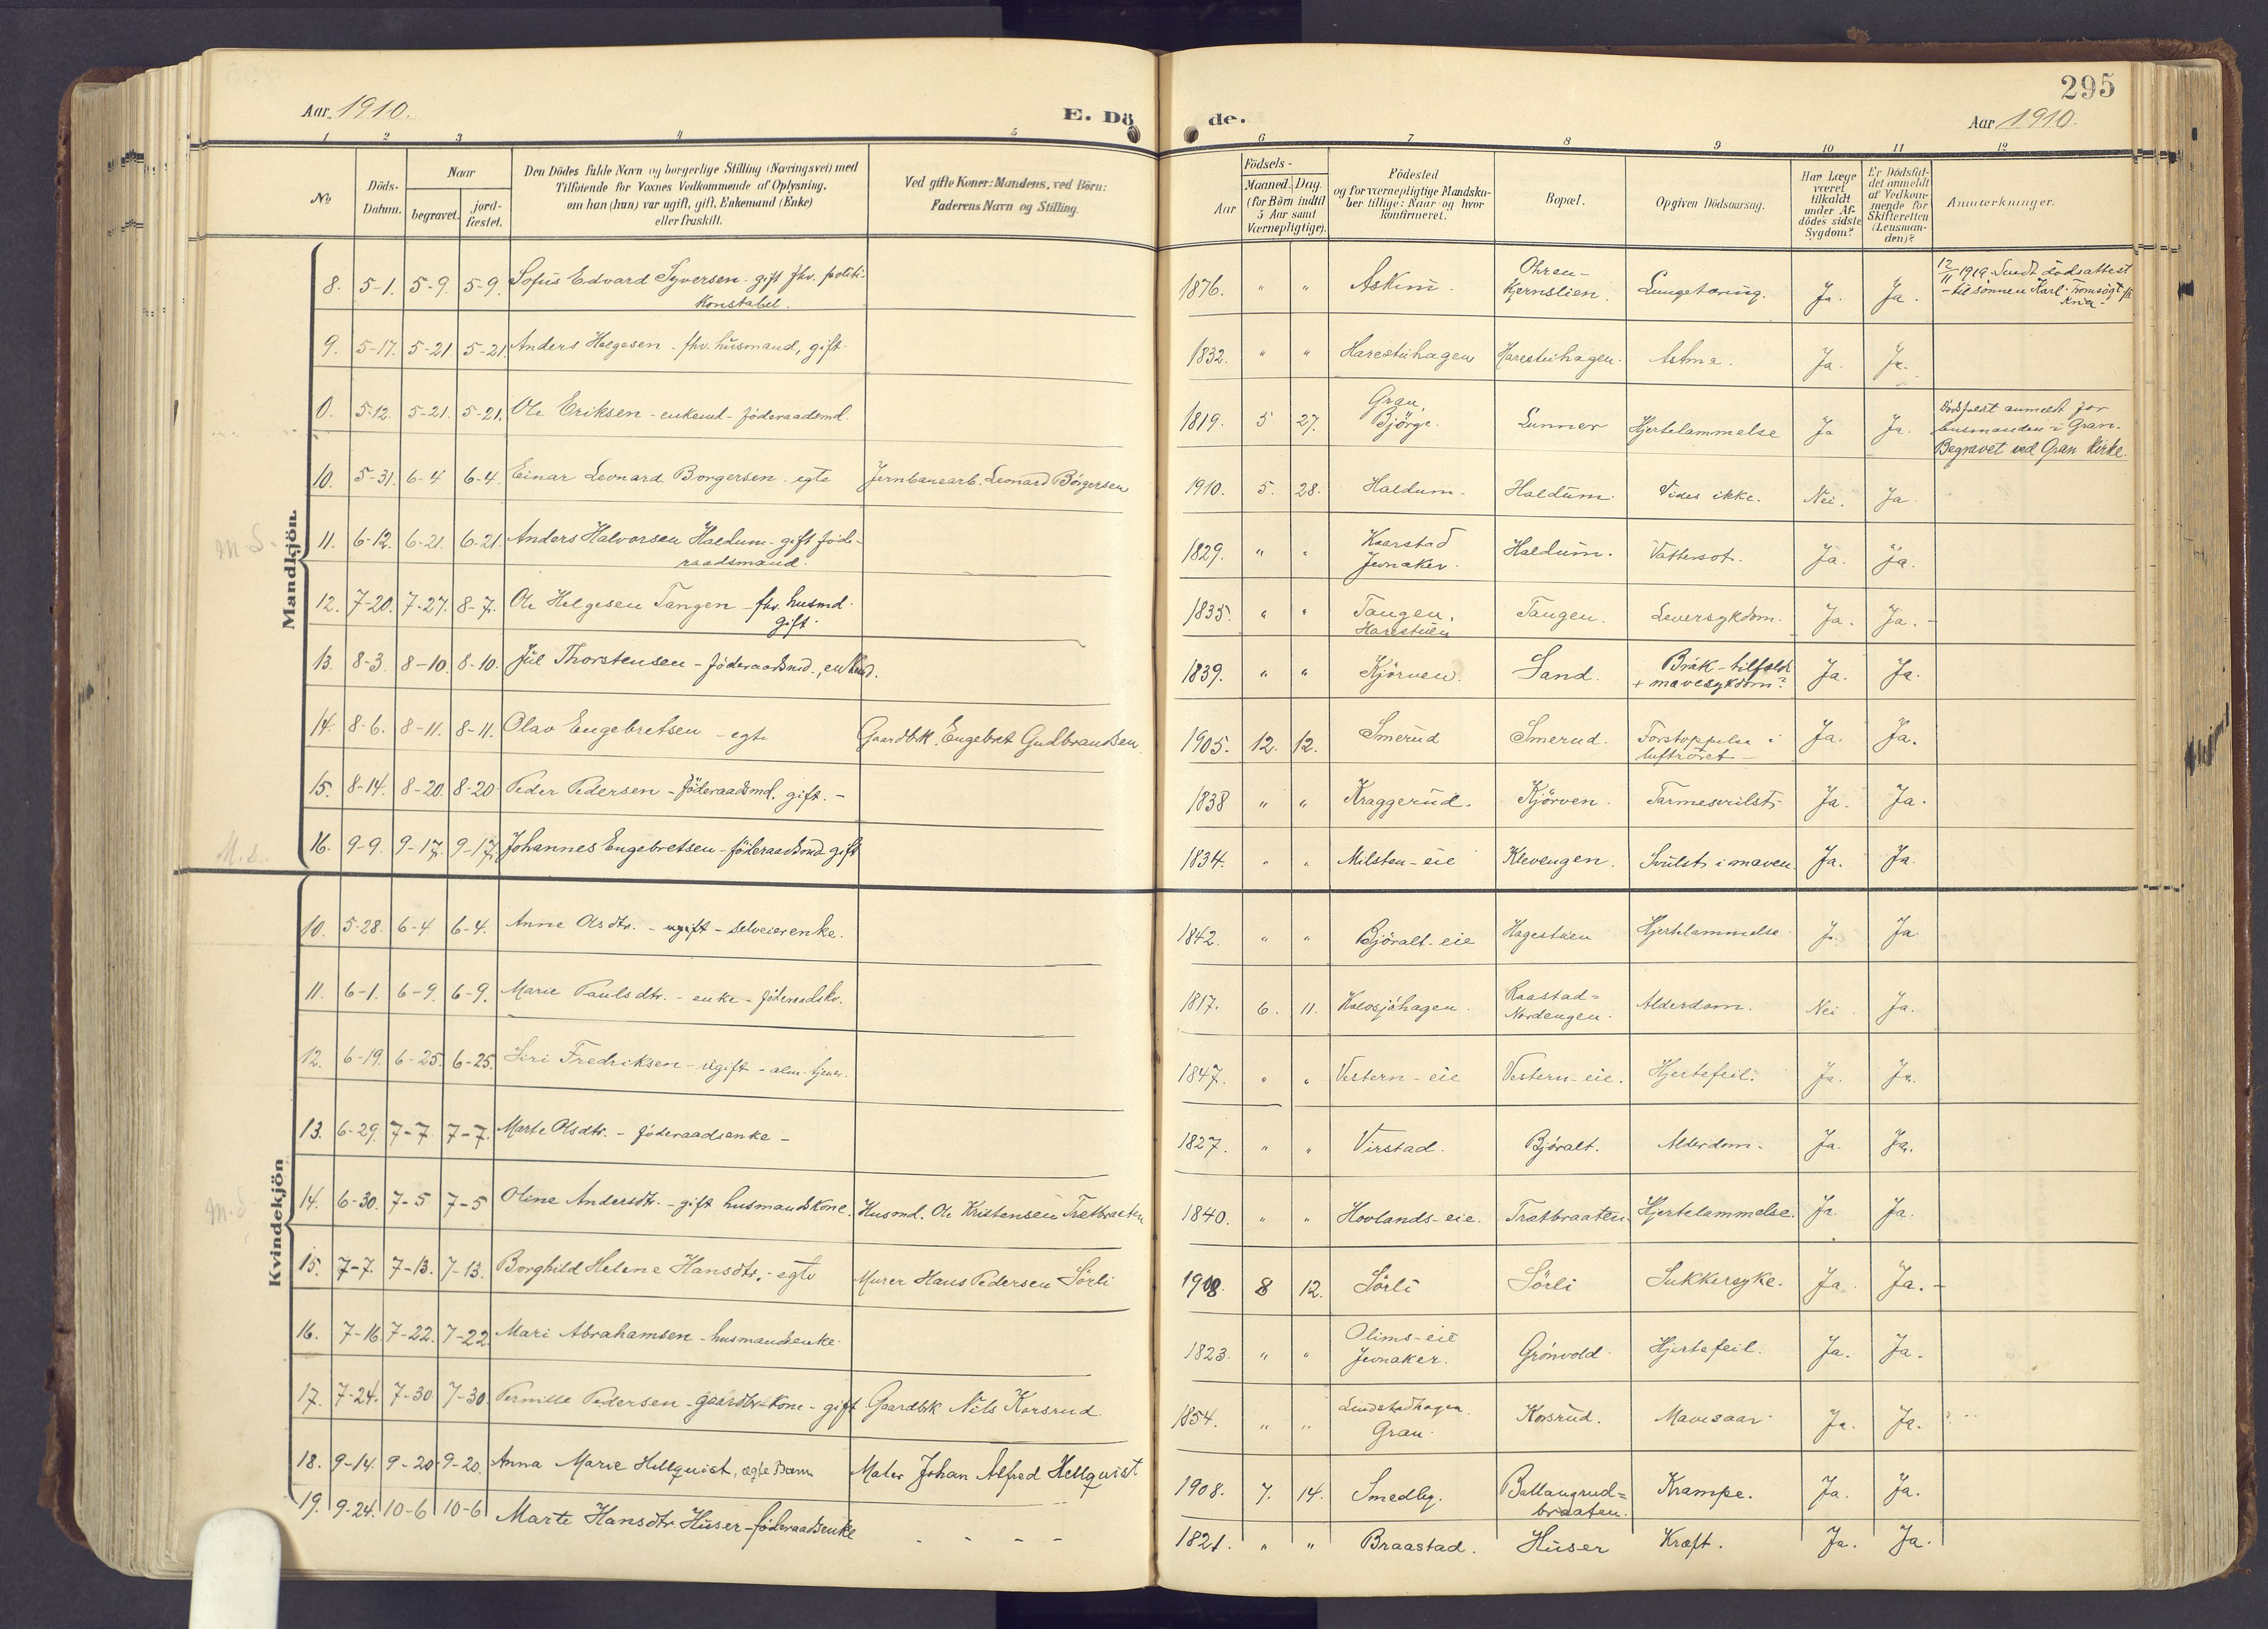 295
Aar 1910.
E. Döde.
Aar 1910.
1 2 3 4 5 6 7 8 9 10 11 12
No
Döds-Datum.
Naar
begravet.
jord-fæstet.
Den Dödes fulde Navn og borgerlige Stilling (Næringsvei) med
Tilföiende for Voxnes Vedkommende af Oplysning,
om han (hun) var ugift, gift, Enkemand (Enke)
eller fraskilt.
Ved gifte Koner: Mandens, ved Börn:
Faderens Navn og Stilling.
Födsels-
Aar
Maaned. Dag.
(for Börn indtil
5 Aar samt
Værnepligtige).
Födested
og for værnepligtige Mandska-
ber tillige: Naar og hvor
konfirmeret.
Bopæl.
Opgiven Dödsaarsag.
Har Læge
været
tilkaldt
under Af-
dödes sidste
Sygdom?
Er Dödsfal-
det anmeldt
af Vedkom-
mende for
Skifteretten
(Lensman-
den)?
Anmærkninger.
Mandkjön.
8. 5-1. 5-9. 5-9. Sofus Edvard Syversen - gift fhv. politi-
konstabel. 1876. " " Askim. Ohren-
Kjernslien. Lungetæring. Ja. Ja. 12/11 1919. Sendt dödsattest
- til sönnen Karl
9. 5-17. 5-21 5-21. Anders Helgesen - fhv. husmand, gift. 1832. " " Harestuhagen Harestuhagen. Astma. Ja. Ja.
0. 5-12. 5-21. 5-21. Ole Eriksen - enkemd - föderaadsmd. 1819. 5 27. Gran,
Björge. Lunner Hjertelammelse Ja Ja. Dödsfaldt anmeldt for
lensmanden i Gran.
Begravet ved Gran kirke.
10. 5-31. 6-4 6-4. Einar Leonard Borgersen - egte Jernbanearb. Leonard Börgersen 1910. 5. 28. Haldum. Haldum. Vides ikke. Nei. Ja
M.S. 11. 6-12. 6-21. 6-21. Anders Halvorsen Haldum - gift föde-
raadsmand. 1829. " " Kaarstad
Jevnaker. Haldum. Vattersot. Ja. Ja.
12. 7-20. 7-27. 8-7. Ole Helgesen Tangen - fhv. husmd.
gift. 1835. " " Tangen,
Harestuen Tangen. Leversykdom. Ja. Ja. -
13. 8-3. 8-10. 8-10. Jul Thorstensen - föderaadsmd., enkemd. 1839. " " Kjörven. Sand. Bråk-tilfælde
+ mavesykdom? Ja. Ja.
14. 8-6. 8-11. 8-11. Olav Engebretsen - egte Gaardbk. Engebret Gudbrandsen. 1905. 12. 12. Smerud Smerud. Forstoppelse i
luftröret - Ja. Ja.
15. 8-14. 8-20. 8-20 Peder Pedersen - föderaadsmd. gift. - 1838 " " Kraggerud. Kjörven. Tarmesvulst. Ja. Ja.
M.S. 16. 9-9. 9-17. 9-17. Johannes Engebretsen - föderaadsmd gift 1834. " " Milsten-eie Klevengen. Svulst i maven. Ja. Ja.
Kvindekjön
10. 5-28. 6-4 6-4. Anne Olsdtr. - ugift - selveierenke. 1842. " " Björalt-eie Hagestuen Hjertelammelse Ja. Ja
11. 6-1. 6-9. 6-9. Marie Paulsdtr. - enke - föderaadsk. 1817. 6. 11. Kalosjöhagen. Raastad=
Nordengen. Alderdom. Nei. Ja.
12. 6-19. 6-25. 6-25. Siri Fredriksen - ugift - alm. tjener. 1847. " " Vestern-eie Vestern-eie. Hjertefeil. Ja. Ja.
13. 6-29. 7-7. 7-7. Marte Olsdtr. - föderaadsenke - 1827. " " Virstad. Björalt. Alderdom. Ja. Ja.
M.S. 14. 6-30. 7-5 7-5 Oline Andersdtr. - gift husmandskone. Husmd. Ole Kristensen Trætbraaten 1840. " " Hovlands-eie. Trætbraaten. Hjertelammelse. Ja. Ja.
15. 7-7. 7-13. 7-13. Borghild Helene Hansdtr. - egte Murer Hans Pedersen Sörli 1908. 8 12. Sörli Sörli Sukkersyke. Ja. Ja. -
16. 7-16 7-22. 7-22 Mari Abrahamsen - husmandsenke. 1823. " " Olims-eie
Jevnaker. Grönvold. Hjertefeil. Ja. Ja.
17. 7-24. 7-30 7-30 Pernille Pedersen - gaardbr.kone - gift Gaardbk Nils Korsrud. 1854. " " Lindstadhagen
Gran. Korsrud. Mavesaar. Ja. Ja.
18. 9-14. 9-20. 9-20. Anna Marie Hellquist, ægte Barn Maler Johan Alfred Hellquist 1908. 7. 14. Smedby. Ballangrud=
braaten. Krampe. Ja. Ja.
19. 9-24. 10-6 10-6 Marte Hansdtr. Huser - föderaadsenke - - - - 1821. " " Braastad. Huser Kræft. Ja. Ja.